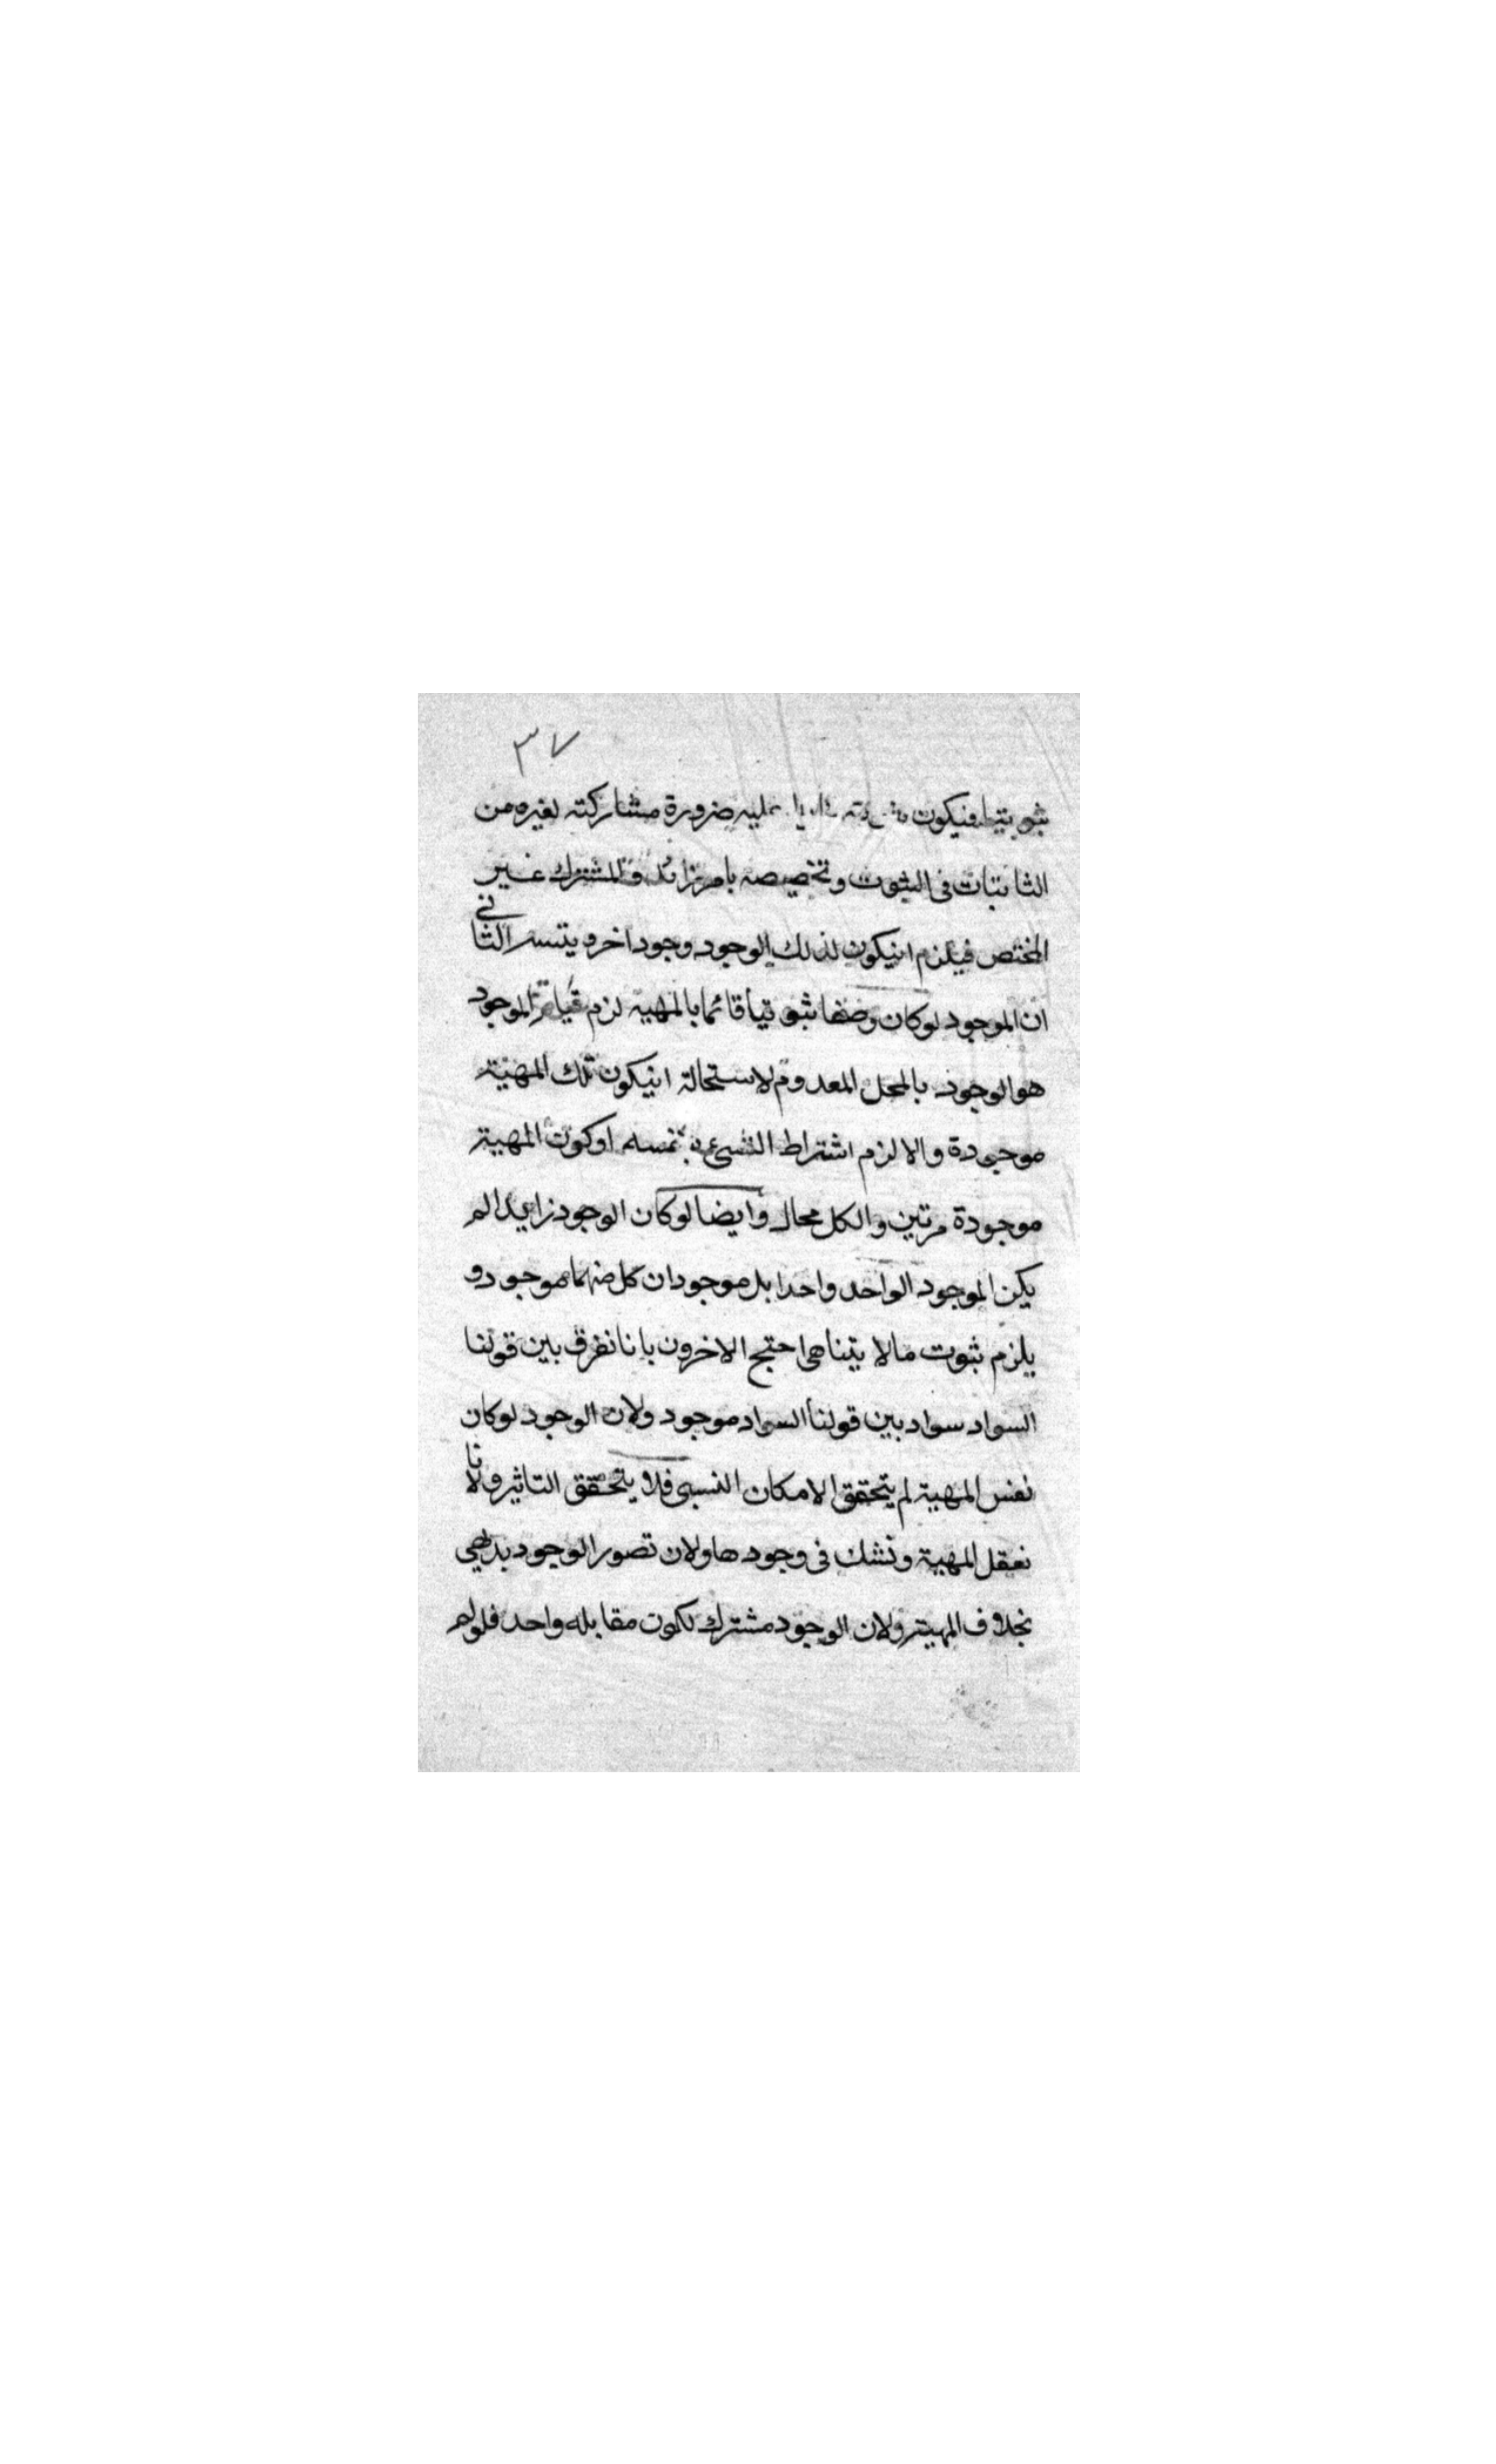 ٣٧
ثبوتيا فيكون عليه ضرورة مشاركته لغيره من
الثابتات فى الثبوت وتخصيصه بامر زائد والمشترك غير
المختص فيلزم انيكون لذلك الوجود وجود اخر ويتسر الثانى
ان الموجود لوكان وصفا ثبوتيا قائما بالمهية لزم قيام الموجود
هو الوجود بالمحل المعدوم لاستحالة انيكون تلك المهية
موجودة والا لزم اشتراط الشىء بنفسه او كون المهية
موجودة مرتين والكل محال وايضا لوكان الوجود زايدا لم
يكن الموجود الواحد واحدا بل موجودان كل منهما موجود و
يلزم ثبوت مالا يتناهى احتج الاخرون بانا نفرق بين قولنا
السواد سواد بين قولنا السواد موجود ولان الوجود لوكان
نفس المهية لم يتحقق الامكان النسبى فلا يتحقق التاثير ولانا
نعقل المهية ونشك فى وجودها ولان تصور الوجود بديهي
بخلاف المهية ولان الوجود مشترك لكون مقابله واحد فلولم